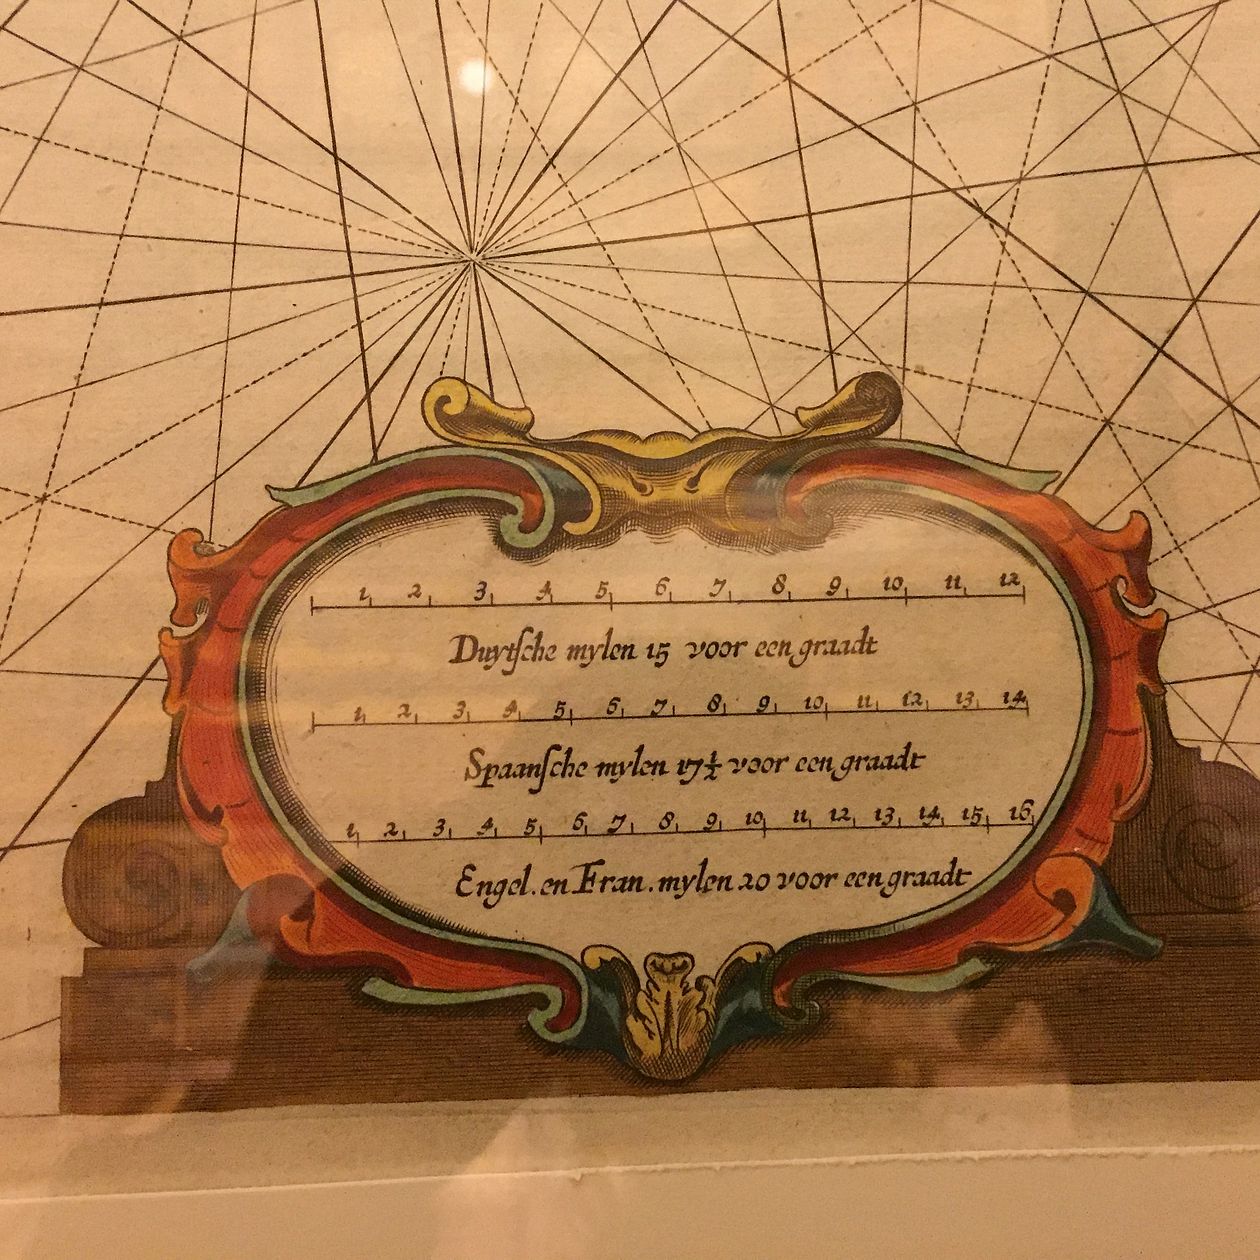 1 2 3 4 5 6 7 8 9 10 11 12
Duytſche mylen 15 voor een graadt
1 2 3 4 5 6 7 8 9 10 11 12 13 14
Spaanſche mylen 17½ voor een graadt
1 2 3 4 5 6 7 8 9 10 11 12 13 14 15 16
Engel. en Fran. mylen 20 voor een graadt